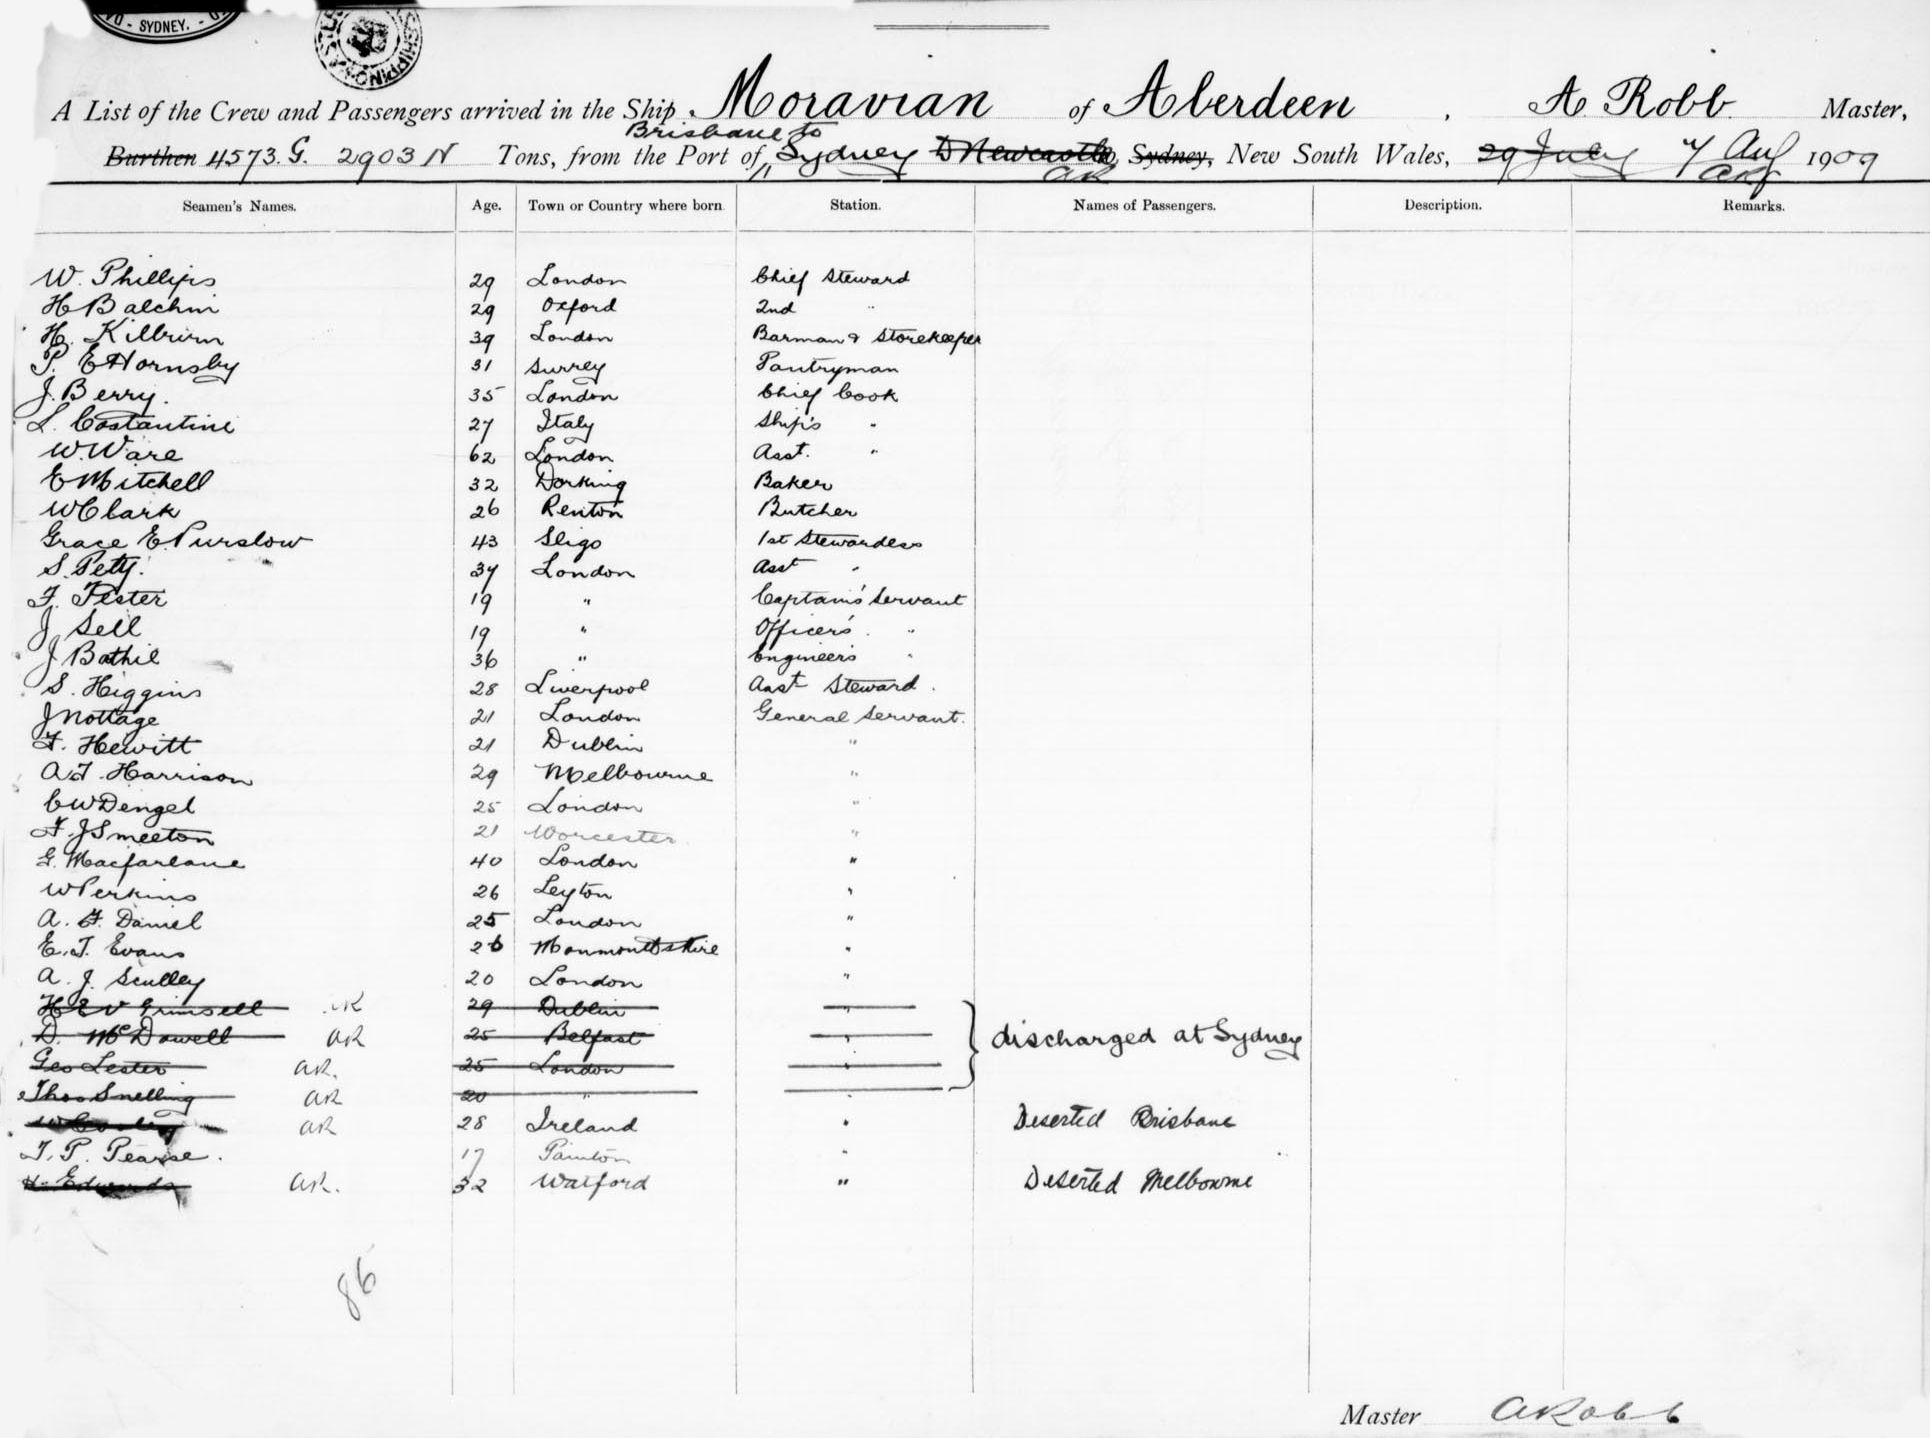 - SYDNEY. -
SHIPPING
A List of the Crew and Passengers arrived in the Ship Moravian of Aberdeen, A. Robb Master,
Brisbane to
Burthen 4573. G. 2903 N Tons, from the Port of Sydney To Newcastle, Sydney, New South Wales, 29 July 7 Aug 1909
AR AR
Seamen's Names. Age. Town or Country where born. Station. Names of Passengers. Description. Remarks.
W. Phillips 29 London Chief Steward
H Balchin 29 Oxford 2nd "
H. Kilburn 39 London Barman & Storekeeper
P. E Hornsby 31 Surrey Pantryman
J. Berry. 35 London Chief Cook
L. Costantini 27 Italy Ship's "
W. Ware 62 London Asst. "
E Mitchell 32 Dorking Baker
W Clark 26 Renton Butcher
Grace E. Purslow 43 Sligo 1st Stewardess
S. Petty. 37 London Asst "
F. Pester 19 " Captains' Servant
J Sell 19 " Officers' "
J Bathie 36 " Engineers "
S. Higgins 28 Liverpool Asst Steward.
J Nottage 21 London General Servant.
F. Hewitt 21 Dublin "
A. F. Harrison 29 Melbourne "
C W Dengel 25 London "
F. J Smeeton 21 Worcester "
G. Macfarlane 40 London "
W Perkins 26 Leyton "
A. F. Daniel 25 London "
E. T. Evans 26 Monmouthshire "
A. J. Sculley 20 London "
H E V Grimsell AR 29 Dublin "
D. McDowell AR 25 Belfast " discharged at Sydney
Geo Lester AR. 25 London "
Thos Snelling AR 20 " "
AR 28 Ireland " Deserted Brisbane
T. P. Pearse. 17 "
H. Edwards AR. 32 Watford " Deserted Melbourne
86
Master A Robb